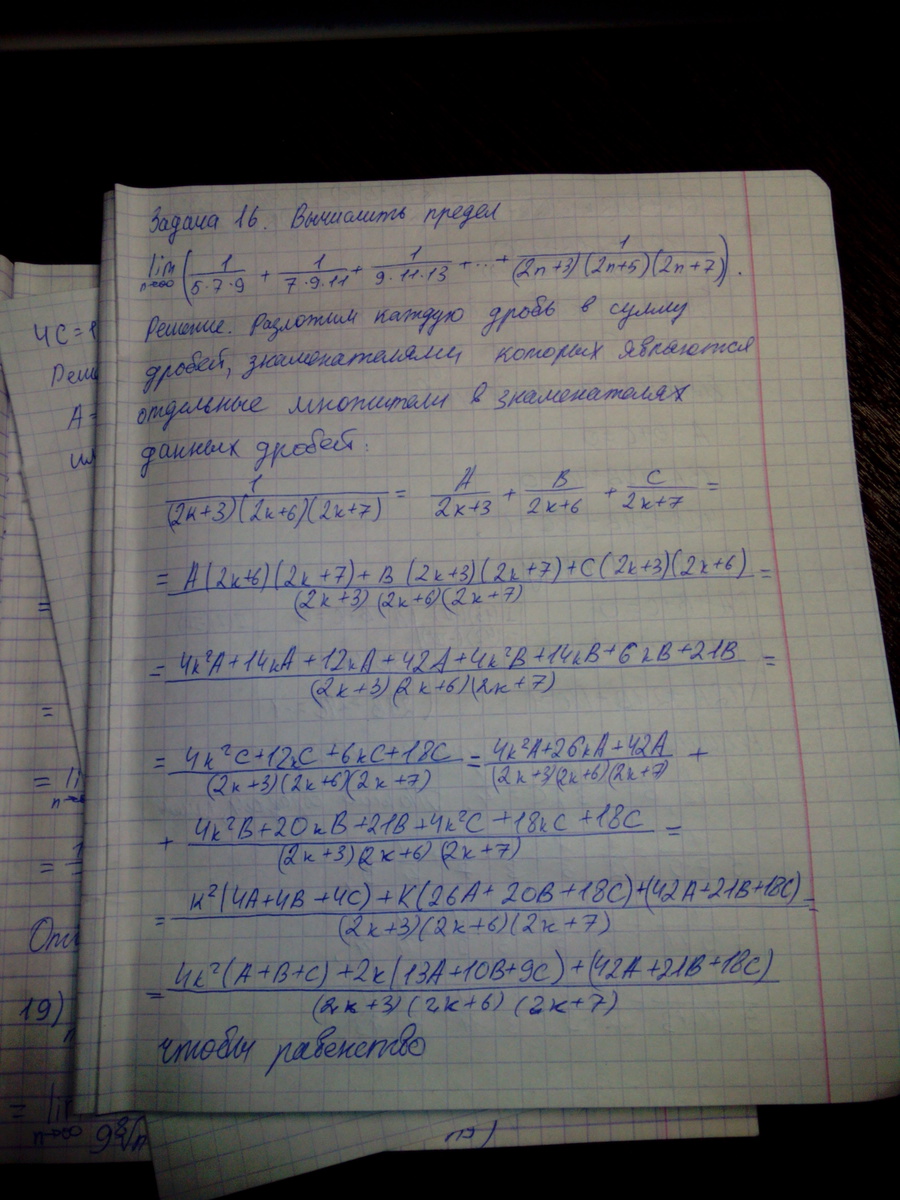 Задача 16. Вычислить предел
lim n→∞ (1/(5·7·9) + 1/(7·9·11) + 1/(9·11·13) + ... + 1/((2n+3)(2n+5)(2n+7))).
Решение. Разложим каждую дробь в сумму
дробей, знаменателями которых являются
отдельные множители в знаменателях
данных дробей:
1/((2k+3)(2k+6)(2k+7)) = A/(2k+3) + B/(2k+6) + C/(2k+7) =
= (A(2k+6)(2k+7)+B(2k+3)(2k+7)+C(2k+3)(2k+6))/((2k+3)(2k+6)(2k+7)) =
= (4k²A+14kA+12kA+42A+4k²B+14kB+6kB+21B)/((2k+3)(2k+6)(2k+7)) =
= (4k²C+12kC+6kC+18C)/((2k+3)(2k+6)(2k+7)) = (4k²A+26kA+42A)/((2k+3)(2k+6)(2k+7)) +
+ (4k²B+20kB+21B+4k²C+18kC+18C)/((2k+3)(2k+6)(2k+7)) =
= (k²(4A+4B+4C)+k(26A+20B+18C)+(42A+21B+18C))/((2k+3)(2k+6)(2k+7)) =
= (4k²(A+B+C)+2k(13A+10B+9C)+(42A+21B+18C))/((2k+3)(2k+6)(2k+7))
чтобы равенство
4C=1
A=
=
=
= n→
=
19)
= lim n→∞